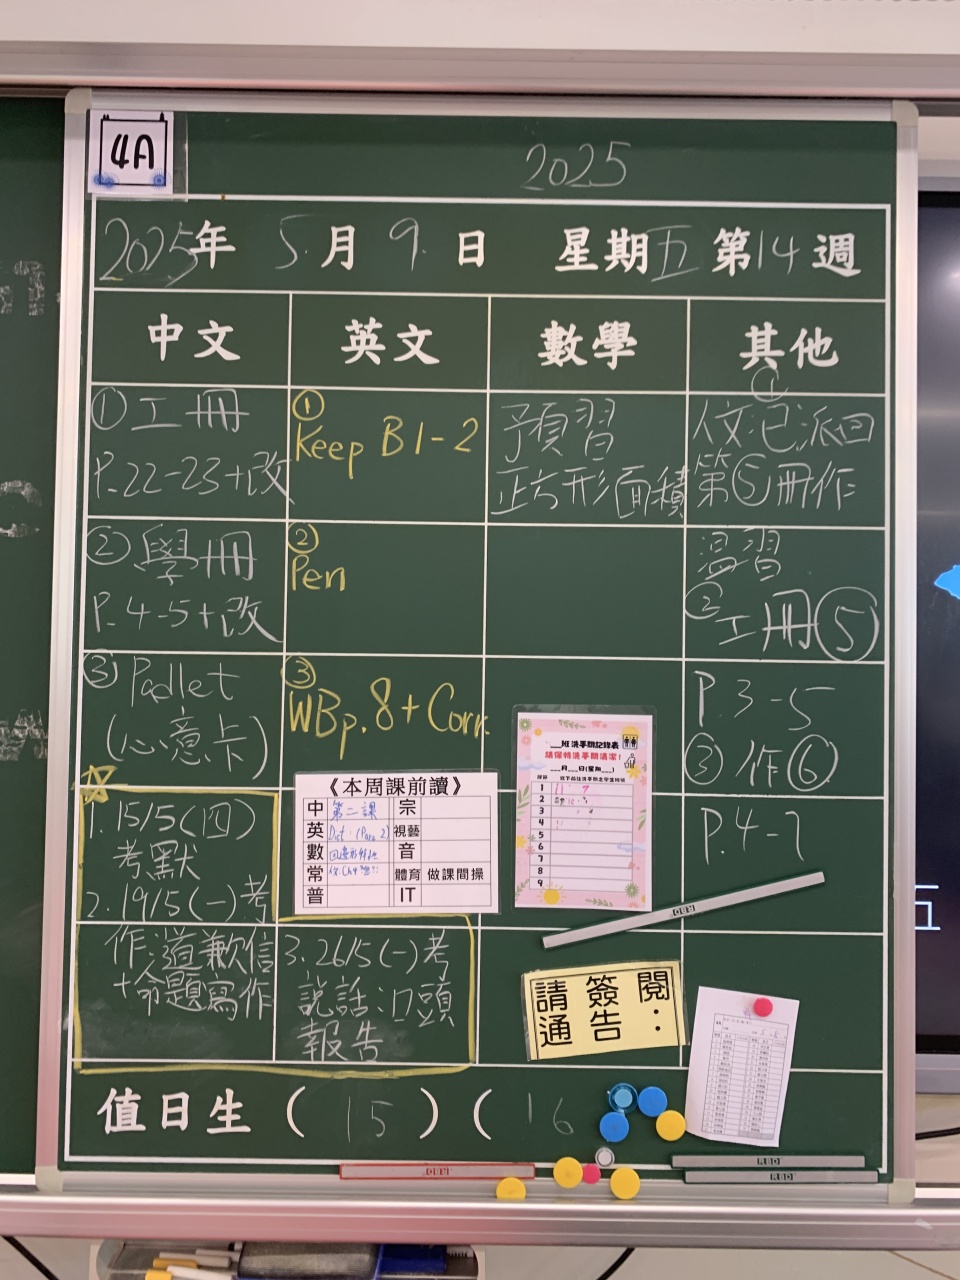 4A
2025
2025年 5月 9日 星期五 第14週
中文 英文 數學 其他
①工冊
P.22-23+改
②學冊
P.4-5+改
③Padlet
(心意卡)
①
Keep B1-2
②
Pen
③
WBp.8+Corr.
預習
正方形面積
①
已派回
第⑤冊作
溫習
②工冊⑤
P.3-5
③作⑥
P.4-7
1.15/5(四)
考默
2.19/5(一)考
作:道歉信
+命題寫作
3.26/5(一)考
說話:口頭
報告
《本周課前讀》
中 第二課 宗
英 Dict. (Para. 2) 視藝
數 音
常 體育 做課間操
普 IT
班洗手間記錄表
請保持洗手間清潔!
月 日(星期 )
1
2
3
4
5
6
7
8
9
請簽閱:
通告
值日生 (15) (16